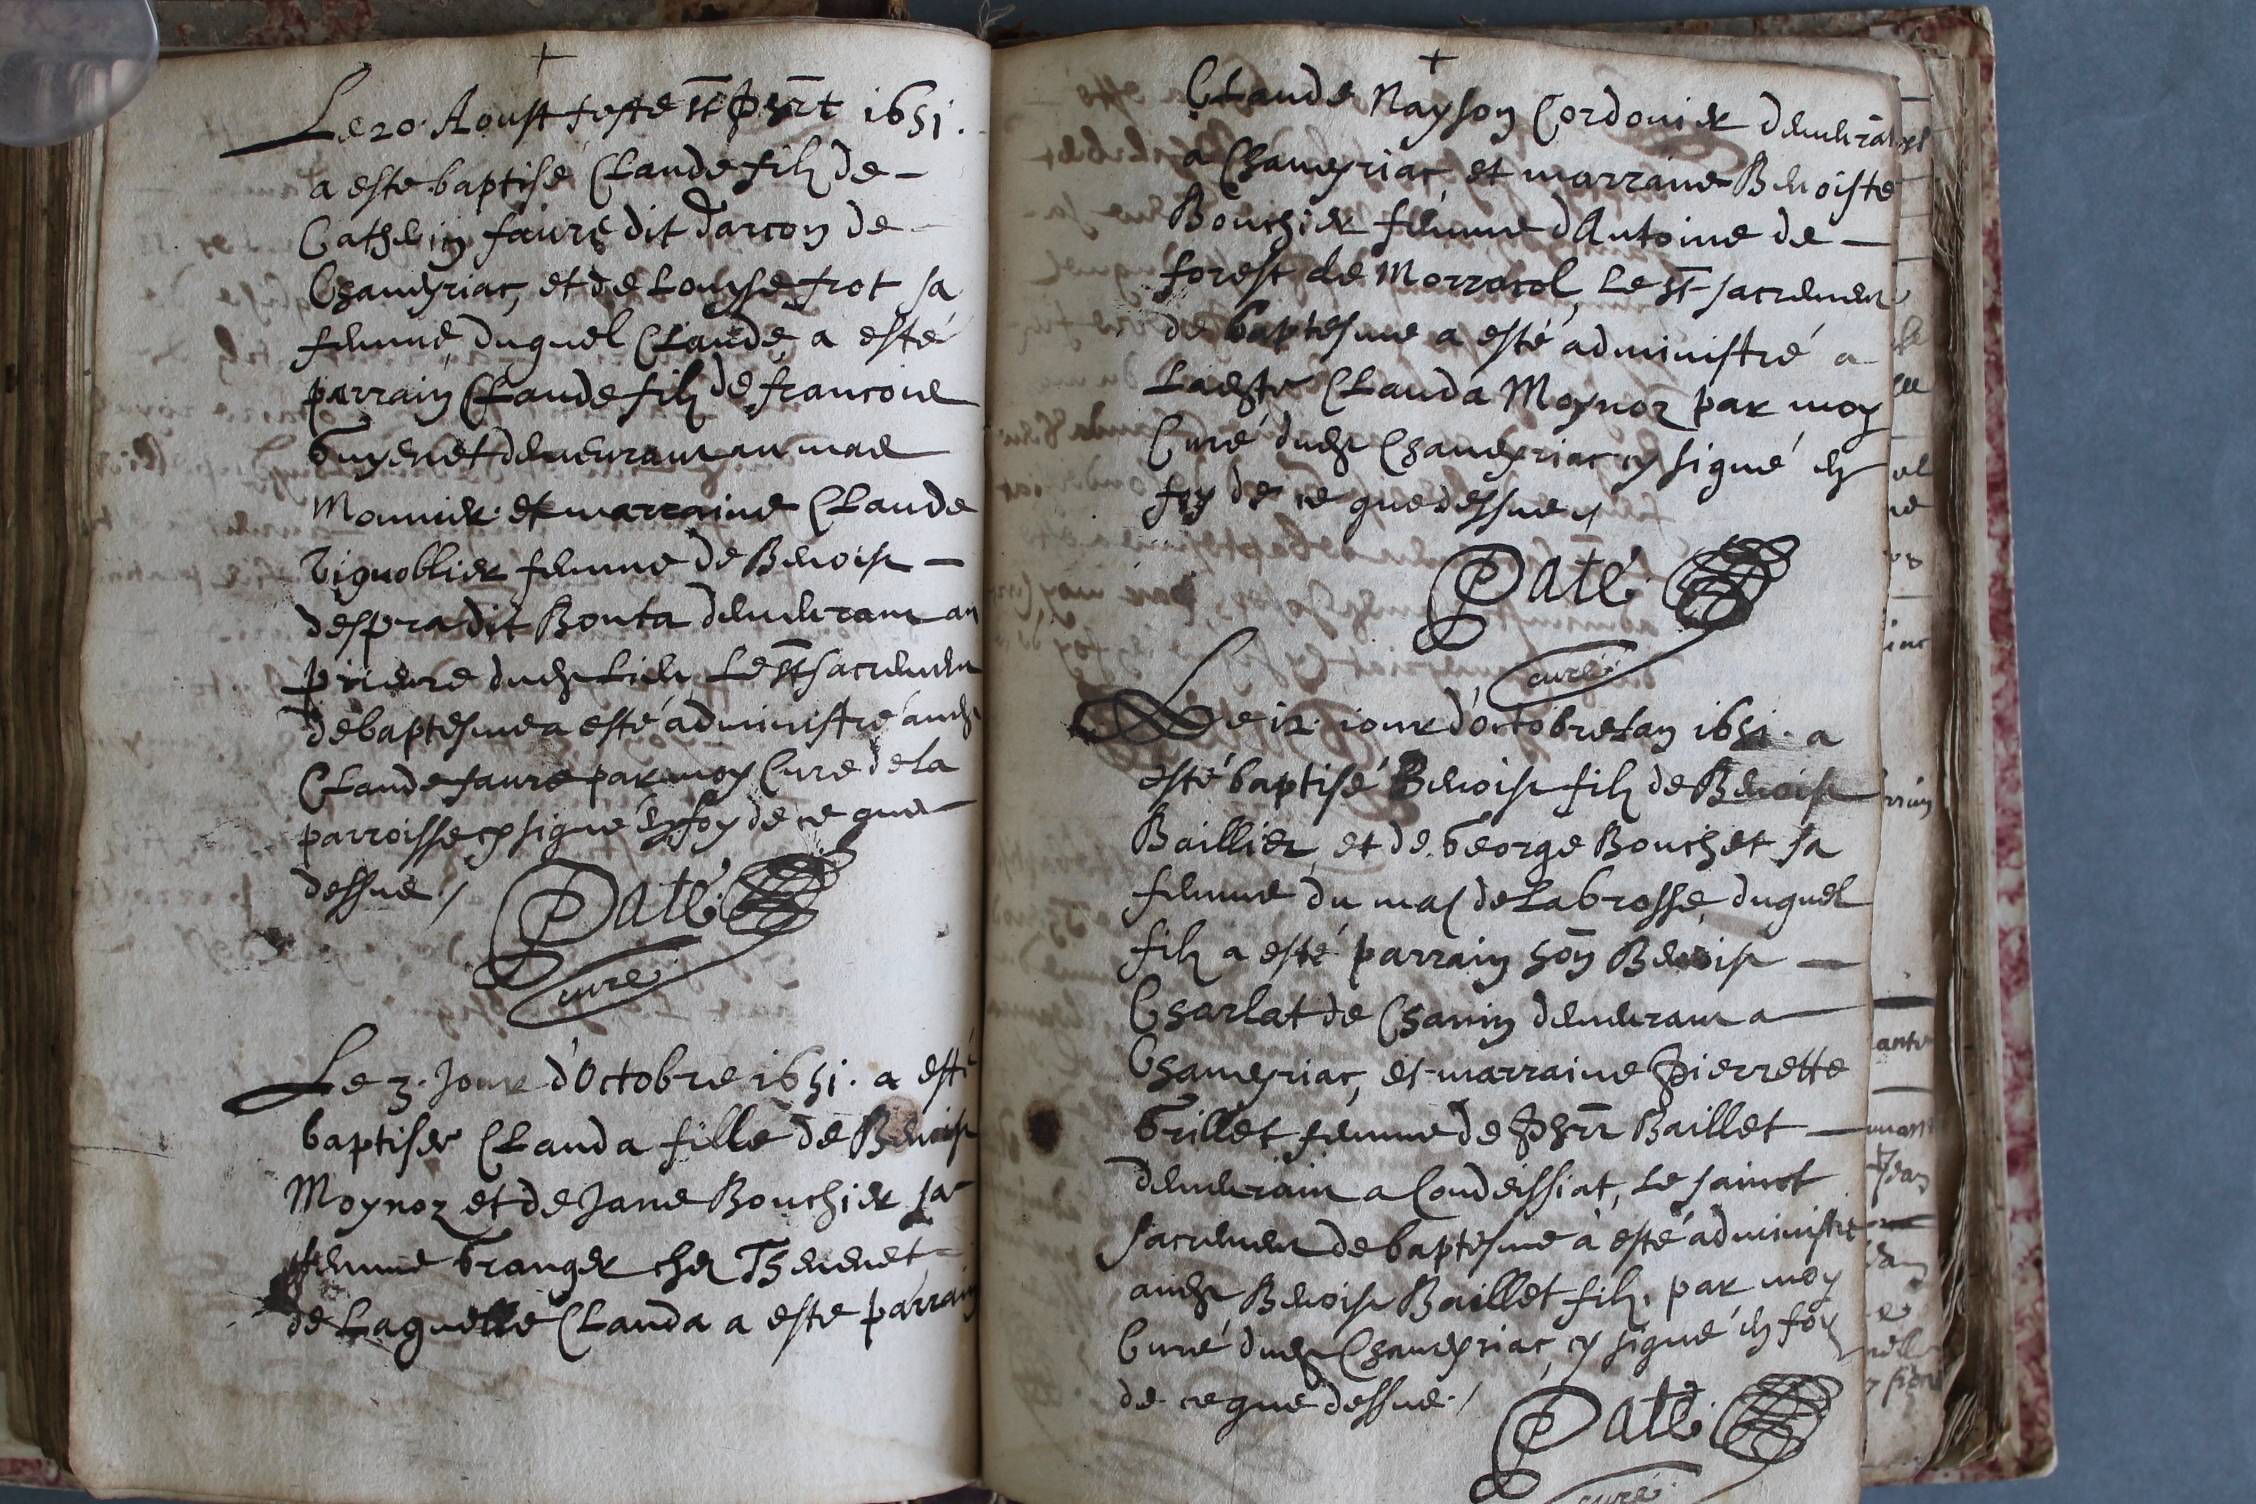 Le 20. Aoust feste St Phrt 1651.
a este baptisé Claude filz de
Catherin faure dit darcon de
Chaneyriac, et de Louyse frot sa
femme, duquel Claude a esté
parrain Claude filz de francois
Guyenet demeurant au mas
Monnier et marraine Claude
Vignollier femme de Benoist
despra dit Bonta demeurant au
prieure dudt lieu, Le St sacrement
de baptesme a esté administré audt
Claude faure par moy Cure de la
parroisse cy signé en foy de ce que
dessus /
Paté
curé
Le 3. Jour d'Octobre 1651. a esté
baptisee Clauda fille de Benoist
Moynoz et de Jane Bouchier sa
femme Granger chez Thevenet
de Laquelle Clauda a este parrain
Claude Nayson Cordonier demeurant
a Chaneyriac, et marraine Benoiste
Bouchier femme d'Antoine de
forest de Morracol, Le St sacrement
de baptesme a esté administré a
Ladte Clauda Moynoz par moy
Curé dudt Chaneyriac cy signé en
foy de ce que dessus /
Paté
curé
Le 12. iour d'Octobre Lan 1651. a
esté baptisé Benoist filz de Benoist
Baillier, et de George Bouchet sa
femme du mas de La brosse, duquel
filz a esté parrain hon Benoist
Charlat de Chanin demeurant a
Chaneyriac, et marraine Pierrette
Grillet femme de Phrt Baillet
demeurant a Condeissiat, Le sainct
sacrement de baptesme a esté administré
audt Benoist Baillet filz, par moy
Curé dudt Chaneyriac, cy signé en foy
de ce que dessus. /
Paté
curé